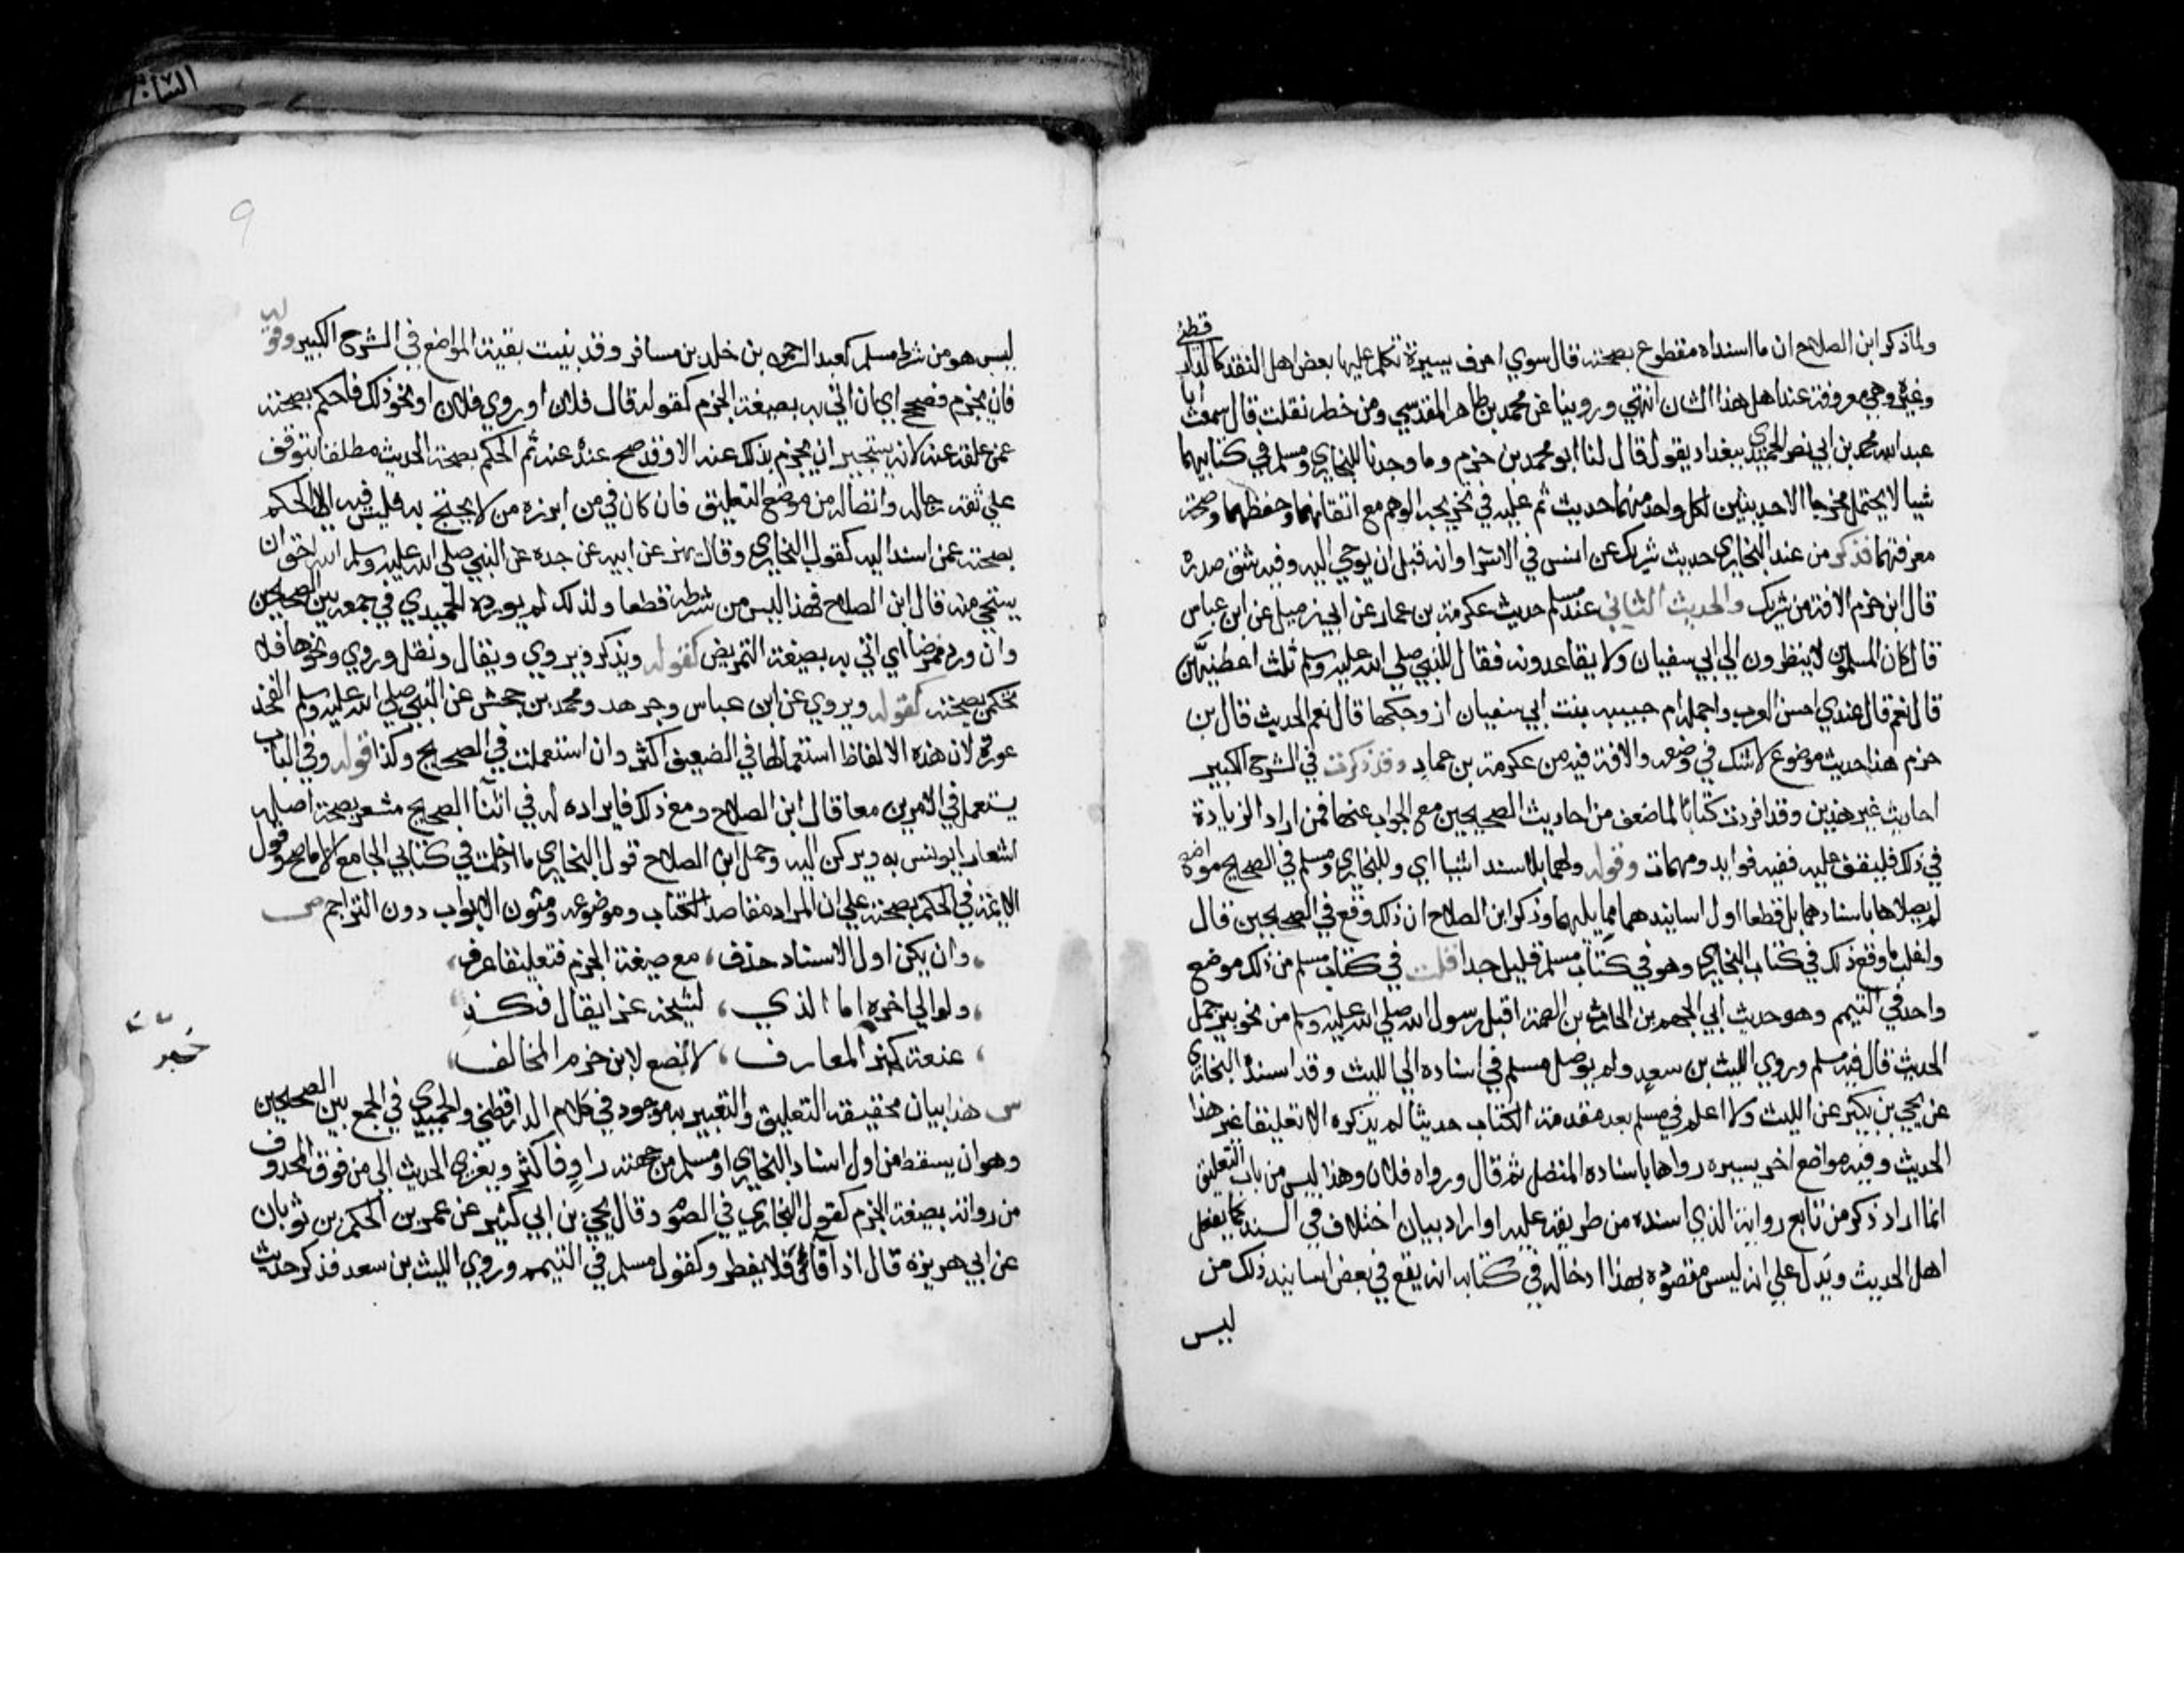 ولما ذكر ابن الصلاح ان ما اسنداه مقطوع بصحته قال سوي احرف يسيرة تكلم عليها بعض اهل النقد كالدار قطني
وغيره وهي معروفة عند اهل هذا الشان انتهي وروينا عن محمد بن طاهر المقدسي ومن خطه نقلت قال سمعت ابا
عبد الله محمد بن ابي نصر الحميدي ببغداد يقول قال لنا ابو محمد بن حزم وما وجدنا للبخاري ومسلم في كتابيهما
شيا لا يحتمل مخرجا الا حديثين لكل واحد منهما حديث تم عليه في تخريجه الوهم مع اتقانهما وحفظهما وصحة
معرفتهما فذكر من عند البخاري حديث شريك عن انس في الاسرا وانه قبل ان يوحي اليه وفيه شق صدره
قال ابن حزم الافة من شريك والحديث الثاني عند مسلم حديث عكرمة بن عمار عن ابي زميل عن ابن عباس
قال كان المسلمون لا ينظرون الي ابي سفيان ولا يقاعدونه فقال للنبي صلي الله عليه وسلم ثلث اعطنيهن
قال نعم قال عندي احسن العرب واجمله ام حبيبه بنت ابي سفيان ازوجكها قال نعم الحديث قال بن
حزم هذا حديث موضوع لا شك في وضعه والافة فيه من عكرمة بن عمار وقد ذكرت في الشرح الكبير
احاديث غير هذين وقد افردت كتابا لما ضعف من احاديث الصحيحين مع الجواب عنها فمن اراد الزيادة
في ذلك فليقف عليه ففيه فوايد ومهمات وقوله ولهما بلا سند اشيا اي وللبخاري ومسلم في الصحيح مواضع
لم يصلاها باسنادهما بل قطعا اول اسانيدهما مما يليهما وذكر ابن الصلاح ان ذلك وقع في الصحيحين قال
واغلب ما وقع ذلك في كتاب البخاري وهو في كتاب مسلم قليل جدا قلت في كتاب مسلم من ذلك موضع
واحد في التيمم وهو حديث ابي الجهم بن الحارث بن الصمة اقبل رسول الله صلي الله عليه وسلم من نحو بير جمل
الحديث قال فيه مسلم وروي الليث بن سعد ولم يوصل مسلم في اسناده الي الليث وقد اسنده البخاري
عن يحيي بن بكير عن الليث ولا اعلم في مسلم بعد مقدمة الكتاب حديثا لم يذكره الا تعليقا غير هذا
الحديث وفيه مواضع اخر يسيره رواها باسناده المتصل ثم قال ورواه فلان وهذا ليس من باب التعليق
انما اراد ذكر من تابع رواية الذي اسنده من طريقه عليه او اراد بيان اختلاف في السند كما يفعل
اهل الحديث ويدل علي انه ليس مقصوده بهذا ادخاله في كتابه انه يقع في بعض اسانيد ذلك من
ليس
٩
ليس هو من شرط مسلم كعبد الرحمن بن خلد بن مسافر وقد بينت بقية المواضع في الشرح الكبير وقوله
فان يجزم فصحح اي ان اتي به بصيغة الجزم كقوله قال فلان او روي فلان او نحو ذلك فاحكم بصحته
عمن علقه عنه لانه يستجيز ان يجزم بذلك عنه الا وقد صح عنده عنه ثم الحكم بصحة الحديث مطلقا يتوقف
علي ثقة رجاله واتصاله من موضع التعليق فان كان في من ابرزه من لا يحتج به فليس فيه الا الحكم
بصحته عمن اسند اليه كقول البخاري وقال بهز عن ابيه عن جده عن النبي صلي الله عليه وسلم الله احق ان
يستحي منه قال ابن الصلاح فهذا ليس من شرطه قطعا ولذلك لم يورده الحميدي في جمعه بين الصحيحين
وان ورد ممرضا اي اتي به بصيغة التمريض كقوله ويذكر ويروي ويقال ونقل وروي ونحوها فلا
تحكمن بصحته كقوله ويروي عن ابن عباس وجرهد ومحمد بن جحش عن النبي صلي الله عليه وسلم الفخذ
عورة لان هذه الالفاظ استعمالها في الضعيف اكثر وان استعملت في الصحيح وكذا قوله وفي الباب
يستعمل في الامرين معا قال ابن الصلاح ومع ذلك فايراده له في اثنا الصحيح مشعر بصحة اصله
اشعارا يونس به ويركن اليه وحمل ابن الصلاح قول البخاري ما ادخلت في كتابي الجامع الا ما صح وقول
الايمة في الحكم بصحته علي ان المراد مقاصد الكتاب وموضوعه ومتون الابواب دون التراجم ص
وان يكن اول الاسناد حذف، مع صيغة الجزم فتعليقا عرف،
ولو الي اخره اما الذي، لشيخه عزا بقال فكذي
عنعنة كخبر المعازف، لا تصغ لابن حزم المخالف،
خبر
س هذا بيان حقيقة التعليق والتعبير به موجود في كلام الدارقطني والحميدي في الجمع بين الصحيحين
وهو ان يسقط من اول اسناد البخاري او مسلم من جهته راو فاكثر ويعزي الحديث الي من فوق المحذوف
من رواته بصيغة الجزم كقول البخاري في الصوم وقال يحيي بن ابي كثير عن عمر بن الحكم بن ثوبان
عن ابي هريرة قال اذا قا فلا يفطر وكقول مسلم في التيمم وروي الليث بن سعد فذكر حديث